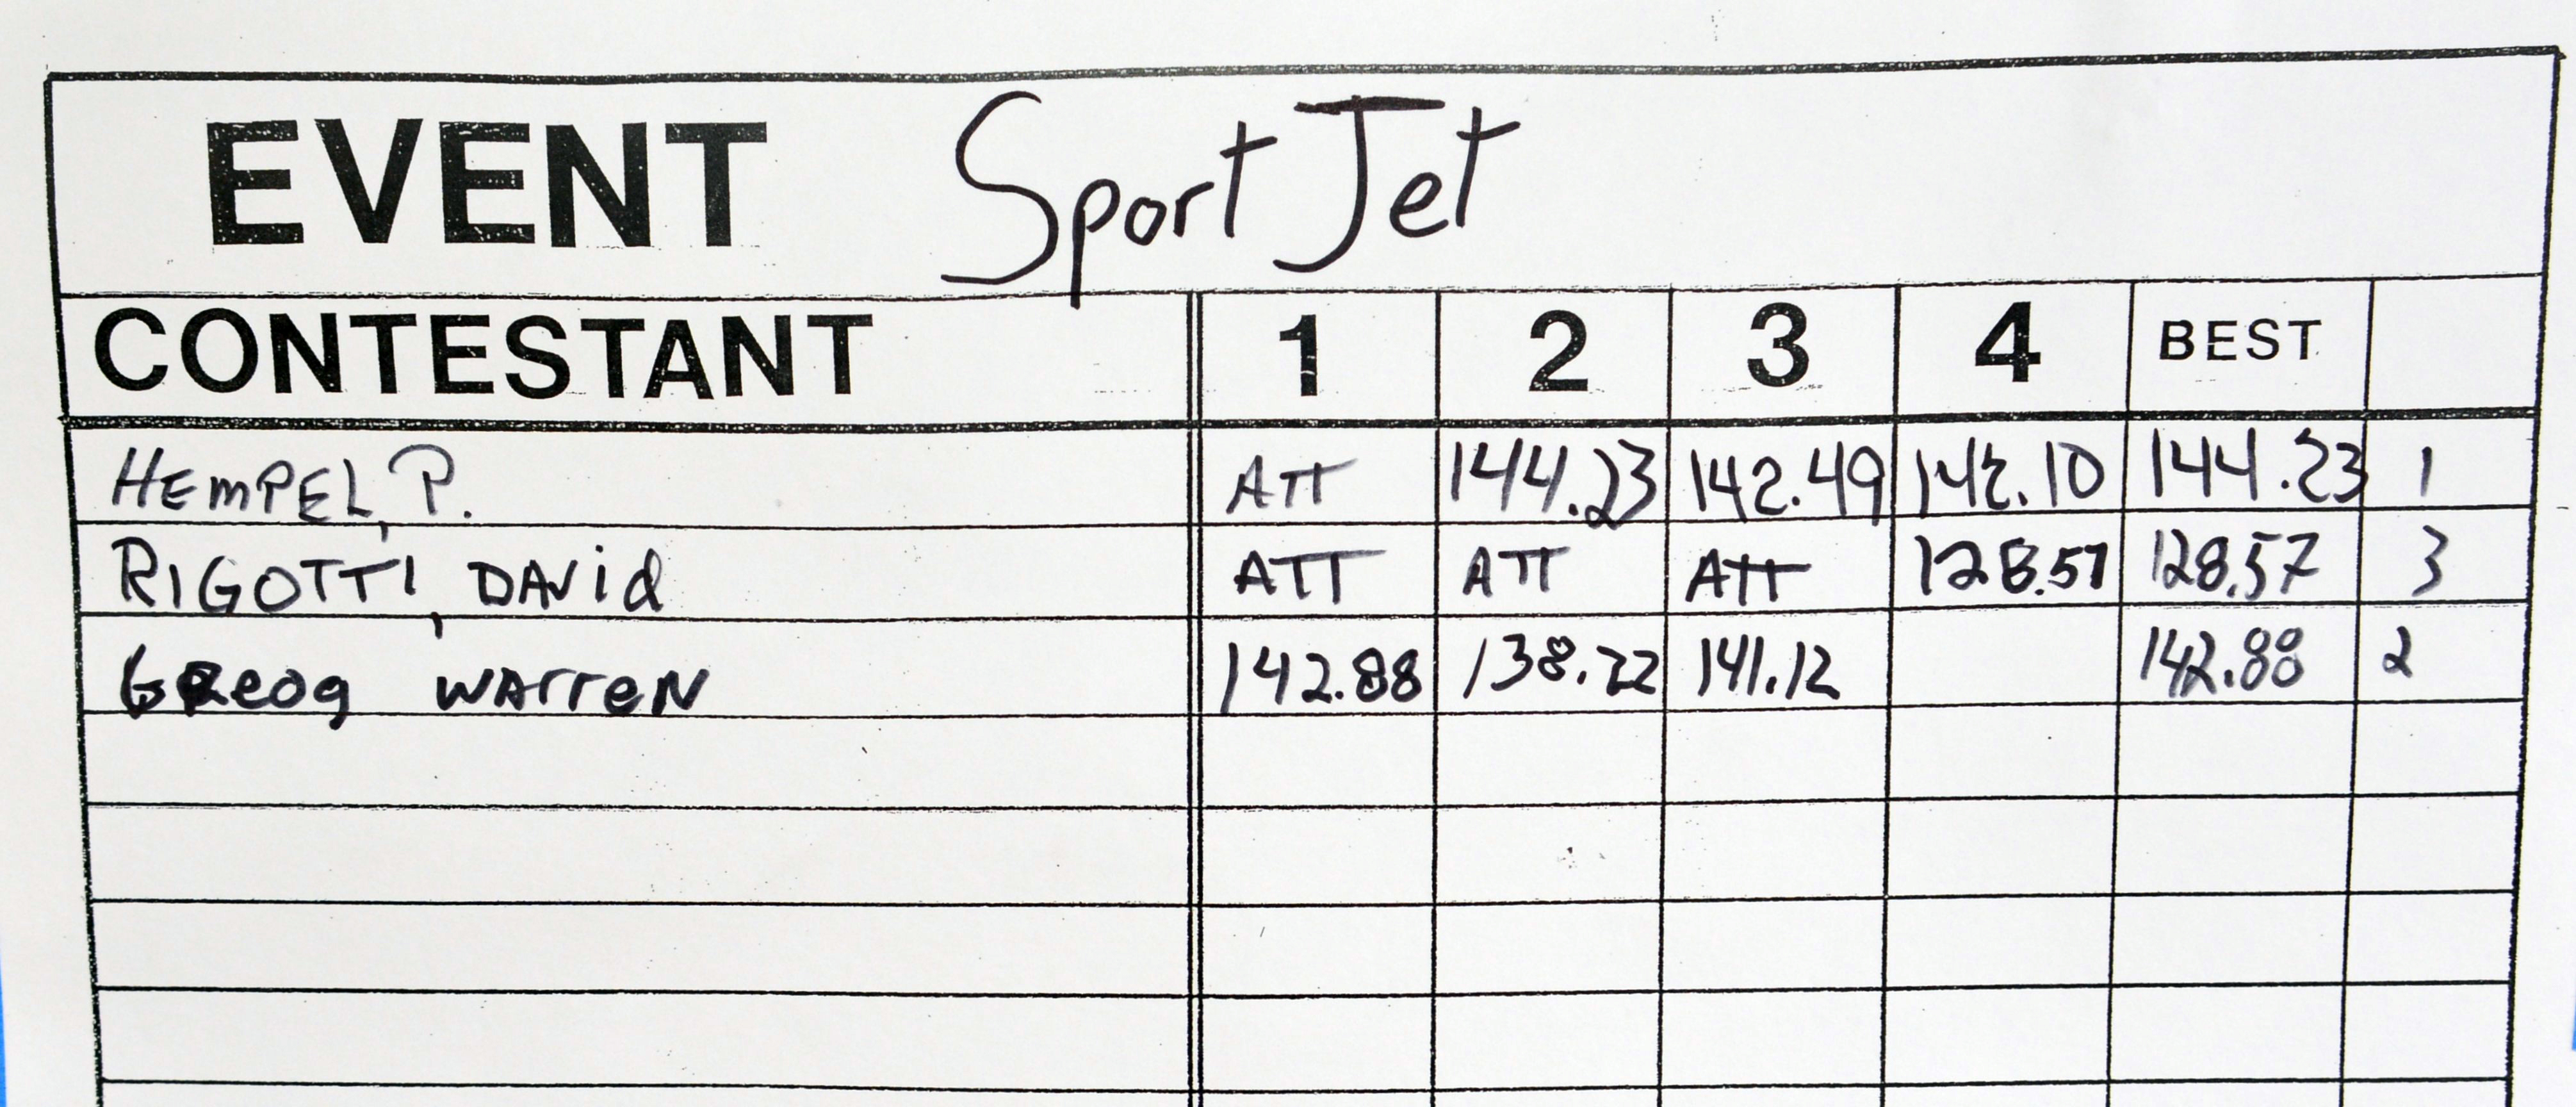 EVENT Sport Jet
CONTESTANT 1 2 3 4 BEST
HEMPEL, P. ATT 144.23 142.49 142.10 144.23 1
RIGOTTI, DAVID ATT ATT ATT 128.57 128.57 3
GREOG WARREN 142.88 138.22 141.12 142.88 2